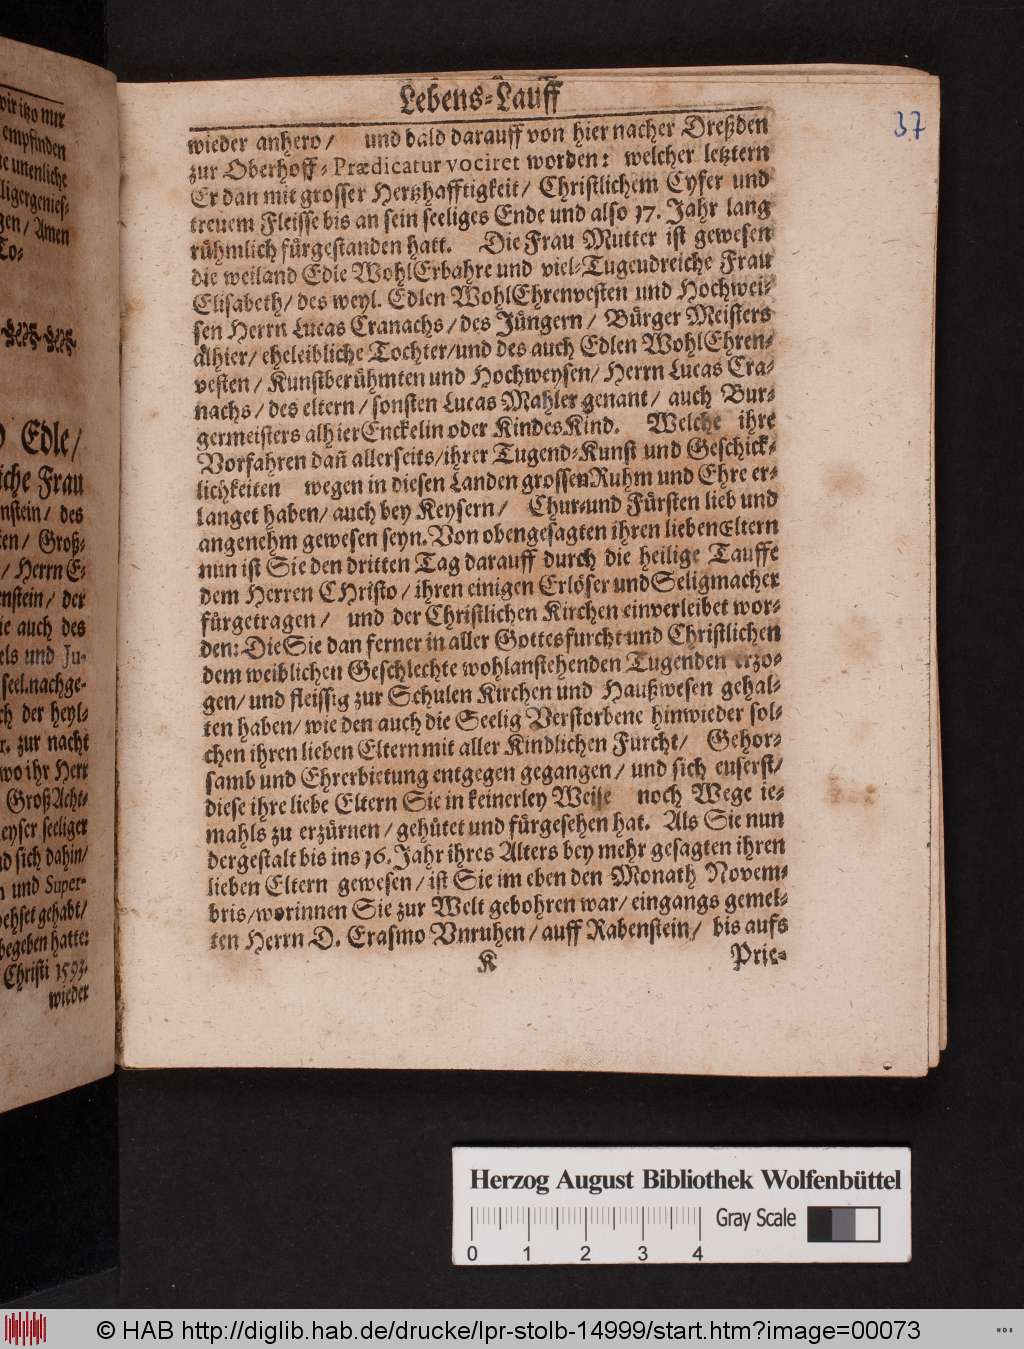 wir itzo nur
empfinden
ne unenliche
ligergenies-
gen/ Amen
To-
Edle/
iche Frau
nstein/ des
ten/ Groß-
/ Herrn E-
enstein/ der
ie auch des
els und Ju-
seel. nachge-
ch der heyl-
r. zur nacht
wo ihr Herr
Groß Acht-
eyser seeliger
nd sich dahin/
n und Super-
ochset gehabt/
begeben hatte:
Christi 1593.
wieder
Lebens-Lauff
37
wieder anhero/ und bald darauff von hier nacher Dreßden
zur Oberhoff-Prædicatur vociret worden: welcher letztern
Er dan mit grosser Hertzhafftigkeit/ Christlichem Eyfer und
treuem Fleisse bis an sein seeliges Ende und also 17. Jahr lang
rühmlich fürgestanden hatt. Die Frau Mutter ist gewesen
die weiland Edle WohlErbahre und viel-Tugendreiche Frau
Elisabeth/ des weyl. Edlen WohlEhrenvesten und Hochwei-
sen Herrn Lucas Cranachs/ des Jüngern/ Bürger Meisters
alhier/ eheleibliche Tochter/ und des auch Edlen WohlEhren-
vesten/ Kunstberühmten und Hochweysen/ Herrn Lucas Cra-
nachs/ des eltern/ sonsten Lucas Mahler genant/ auch Bur-
germeisters alhier Enckelin oder KindesKind. Welche ihre
Vorfahren dañ allerseits/ ihrer Tugend-Kunst und Geschick-
lichkeiten wegen in diesen Landen grossen Ruhm und Ehre er-
langet haben/ auch bey Keysern/ Chur-und Fürsten lieb und
angenehm gewesen seyn. Von obengesagten ihren lieben Eltern
nun ist Sie den dritten Tag darauff durch die heilige Tauffe
dem Herren CHristo/ ihren einigen Erlöser und Seligmacher
fürgetragen/ und der Christlichen Kirchen einverleibet wor-
den: Die Sie dan ferner in aller Gottesfurcht und Christlichen
dem weiblichen Geschlechte wohlanstehenden Tugenden erzo-
gen/ und fleissig zur Schulen Kirchen und Haußwesen gehal-
ten haben/ wie den auch die Seelig Verstorbene hinwieder sol-
chen ihren lieben Eltern mit aller Kindlichen Furcht/ Gehor-
samb und Ehrerbietung entgegen gegangen/ und sich euserst/
diese ihre liebe Eltern Sie in keinerley Weise noch Wege ie-
mahls zu erzürnen/ gehütet und fürgesehen hat. Als Sie nun
dergestalt bis ins 16. Jahr ihres Alters bey mehr gesagten ihren
lieben Eltern gewesen/ ist Sie im eben den Monath Novem-
bris/ worinnen Sie zur Welt gebohren war/ eingangs gemel-
ten Herrn D. Erasmo Vnruhen/ auff Rabenstein/ bis aufs
K Prie-
Herzog August Bibliothek Wolfenbüttel
Gray Scale
0 1 2 3 4
© HAB http://diglib.hab.de/drucke/lpr-stolb-14999/start.htm?image=00073